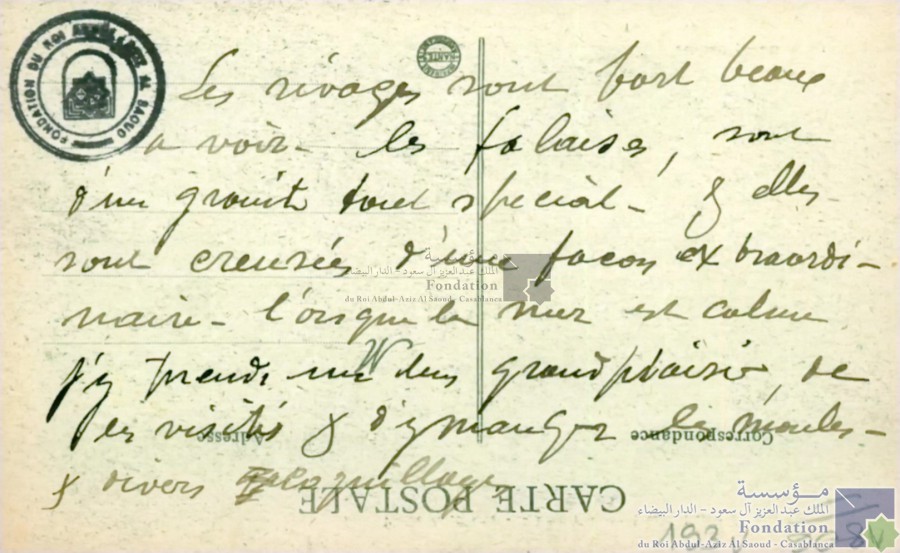 FONDATION DU ROI ABDUL-AZIZ AL SAOUD
Les rivages sont fort beaux
a voir - les falaises, sont
d'un granite tout special - & elles
sont creusées d'une façon extraordi-
naire - lorsque la mer est calme
j'y prends un grand plaisir, de
les visités & d'y manger des moules -
& divers coquillages
Correspondance
Adresse
CARTE POSTALE
مؤسسة
الملك عبد العزيز آل سعود - الدار البيضاء
Fondation
du Roi Abdul-Aziz Al Saoud - Casablanca
مؤسسة
الملك عبد العزيز آل سعود - الدار البيضاء
Fondation
du Roi Abdul-Aziz Al Saoud - Casablanca